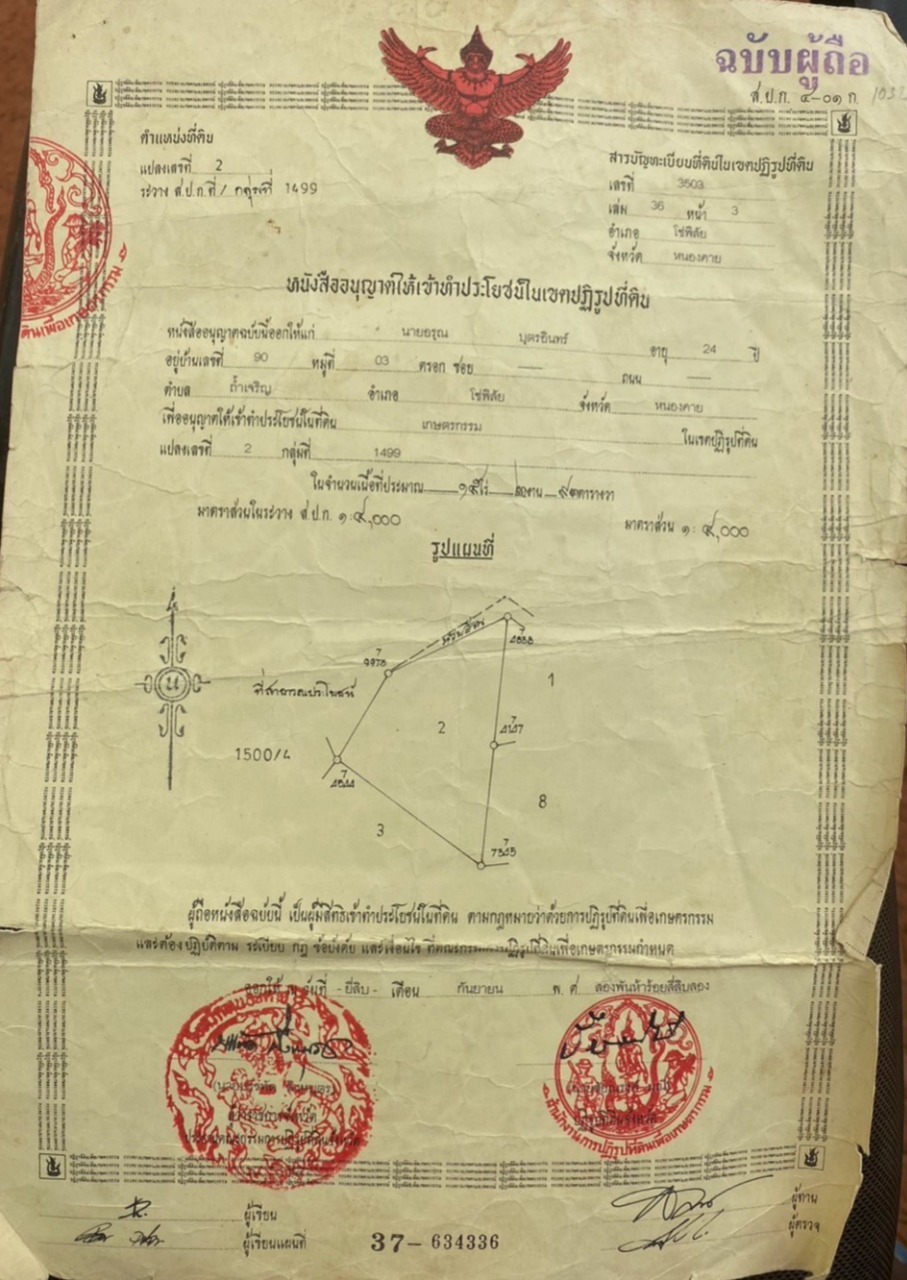 ฉบับผู้ถือ
ส.ป.ก. ๔-๐๑ ก.
ตำแหน่งที่ดิน
แปลงเลขที่ 2
ระวาง ส.ป.ก.ที่ / กลุ่มที่ 1499
สารบัญทะเบียนที่ดินในเขตปฏิรูปที่ดิน
เลขที่ 3503
เล่ม 36 หน้า 3
อำเภอ โซ่พิสัย
จังหวัด หนองคาย
หนังสืออนุญาตให้เข้าทำประโยชน์ในเขตปฏิรูปที่ดิน
หนังสืออนุญาตฉบับนี้ออกให้แก่ นายอรุณ บุตรอินทร์ อายุ 24 ปี
อยู่บ้านเลขที่ 90 หมู่ที่ 03 ตรอก ซอย — ถนน —
ตำบล ถ้ำเจริญ อำเภอ โซ่พิสัย จังหวัด หนองคาย
เพื่ออนุญาตให้เข้าทำประโยชน์ในที่ดิน เกษตรกรรม ในเขตปฏิรูปที่ดิน
แปลงเลขที่ 2 กลุ่มที่ 1499
ในจำนวนเนื้อที่ประมาณ ไร่ งาน ตารางวา
มาตราส่วนในระวาง ส.ป.ก. ๑:๔,๐๐๐ มาตราส่วน ๑: ๔,๐๐๐
รูปแผนที่
น
ที่สาธารณประโยชน์
1500/4
1
2
3
8
7
7
7
7
7
ผู้ถือหนังสือฉบับนี้ เป็นผู้มีสิทธิเข้าทำประโยชน์ในที่ดิน ตามกฎหมายว่าด้วยการปฏิรูปที่ดินเพื่อเกษตรกรรม
และต้องปฏิบัติตาม ระเบียบ กฎ ข้อบังคับ และเงื่อนไข ที่คณะกรรมการปฏิรูปที่ดินเพื่อเกษตรกรรมกำหนด
ออกให้ ณ วันที่ -ยี่สิบ- เดือน กันยายน พ.ศ. สองพันห้าร้อยสี่สิบสอง
ผู้ว่าราชการจังหวัด
ปฏิรูปที่ดินจังหวัด
ประธานคณะกรรมการปฏิรูปที่ดินจังหวัด
สำนักงานการปฏิรูปที่ดินเพื่อเกษตรกรรม
ผู้เขียน
ผู้เขียนแผนที่
37-634336
ผู้ทาน
ผู้ตรวจ